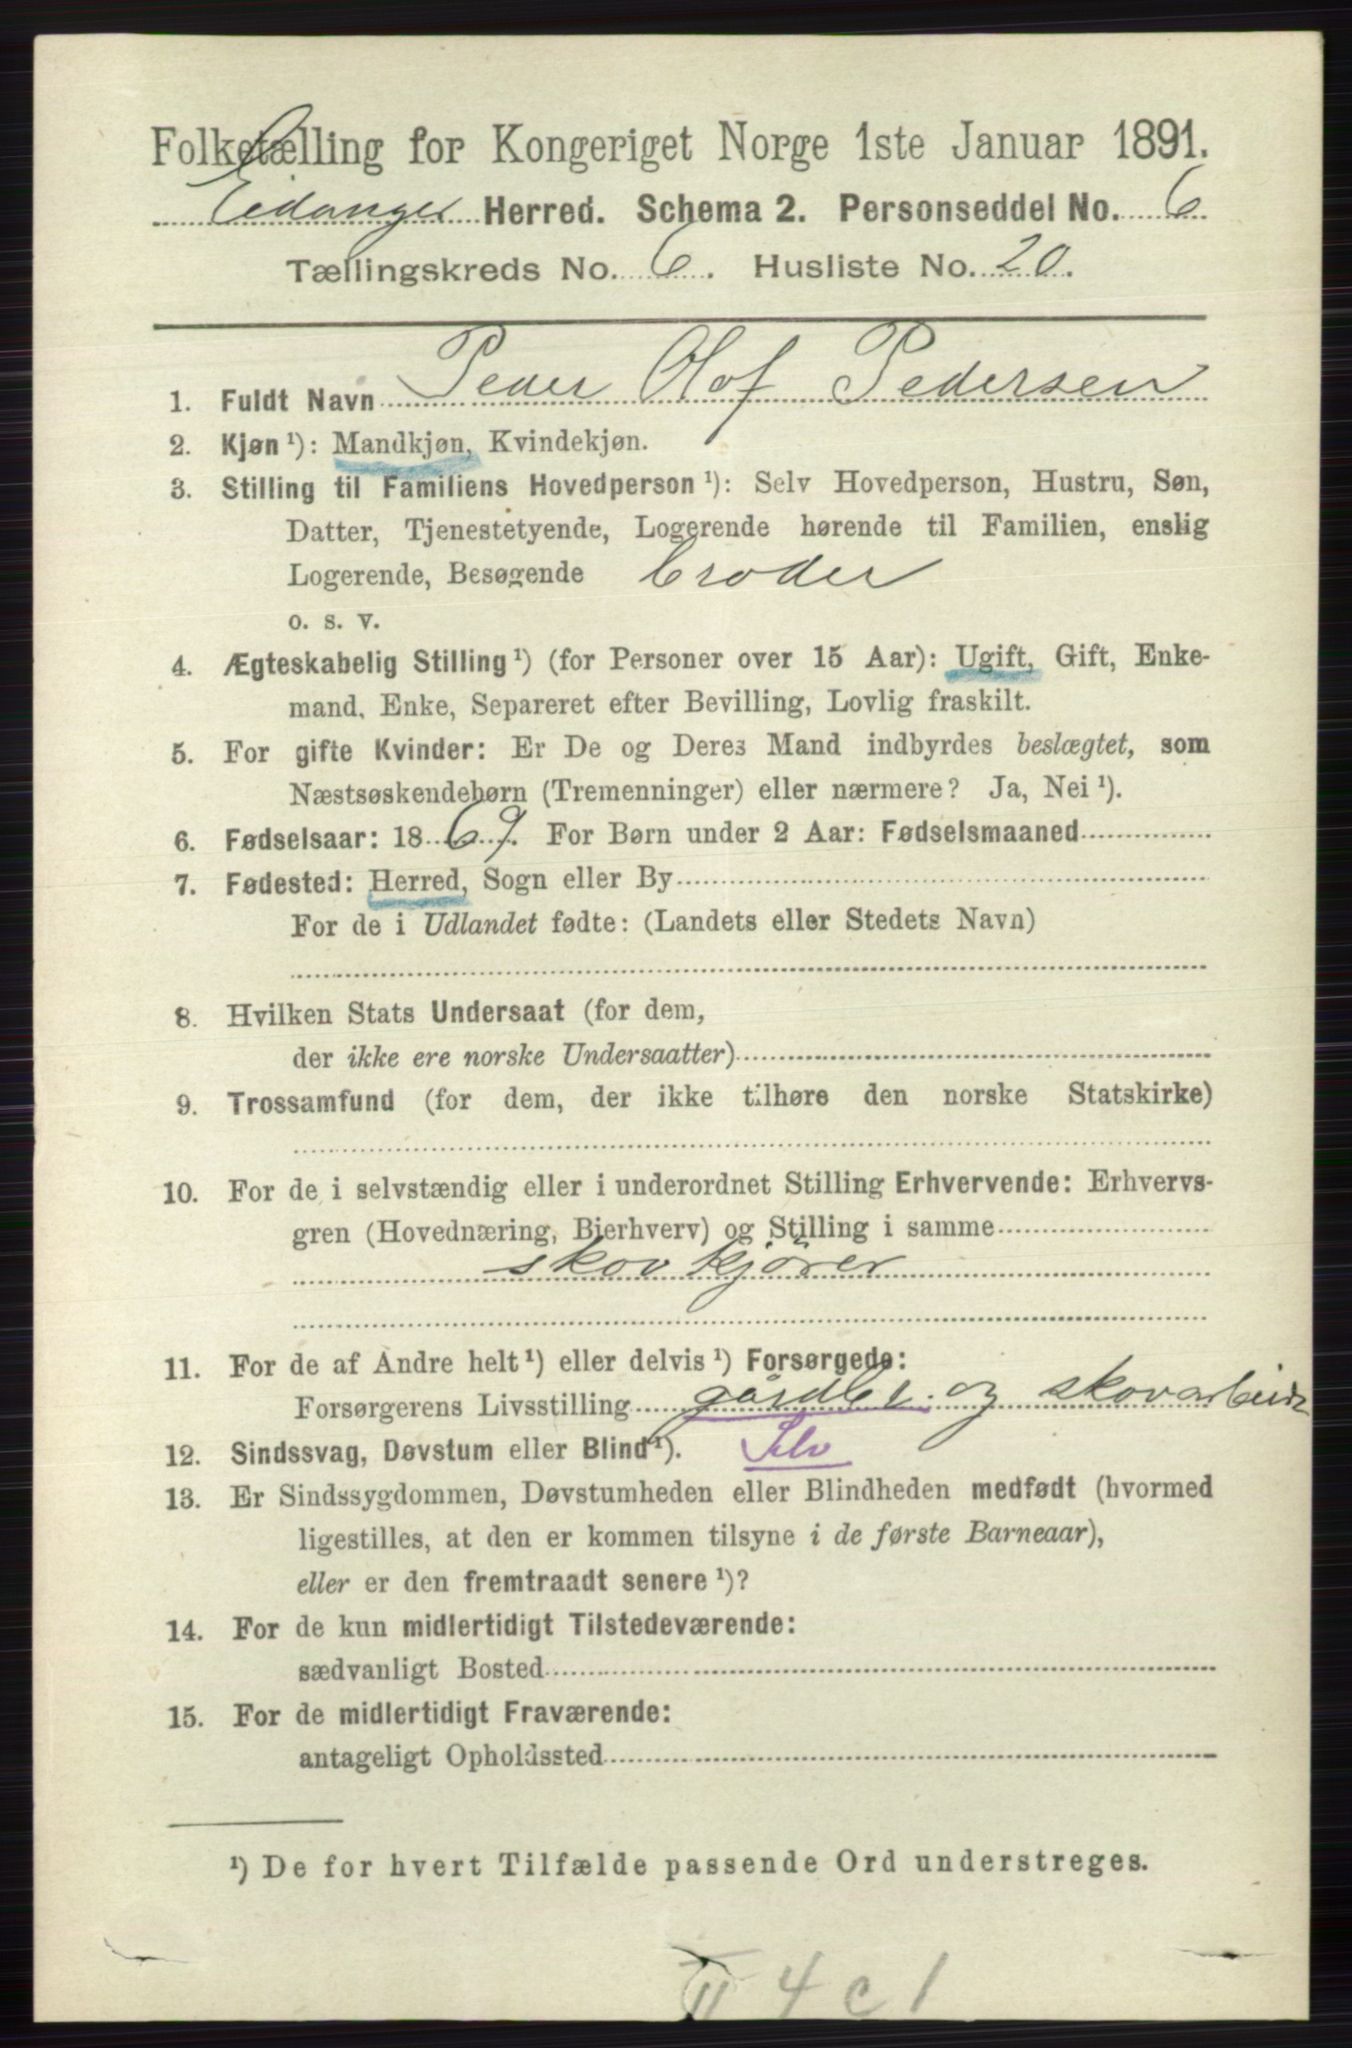 Folketælling for Kongeriget Norge 1ste Januar 1891.
Eidanger Herred. Schema 2. Personseddel No. 6
Tællingskreds No. 6. Husliste No. 20.
1. Fuldt Navn Peder Olof Pedersen
2. Kjøn ¹): Mandkjøn, Kvindekjøn.
3. Stilling til Familiens Hovedperson ¹): Selv Hovedperson, Hustru, Søn,
Datter, Tjenestetyende, Logerende hørende til Familien, enslig
Logerende, Besøgende broder
o. s. v.
4. Ægteskabelig Stilling ¹) (for Personer over 15 Aar): Ugift, Gift, Enke-
mand, Enke, Separeret efter Bevilling, Lovlig fraskilt.
5. For gifte Kvinder: Er De og Deres Mand indbyrdes beslægtet, som
Næstsøskendebørn (Tremenninger) eller nærmere? Ja, Nei ¹).
6. Fødselsaar: 1869. For Børn under 2 Aar: Fødselsmaaned
7. Fødested: Herred, Sogn eller By
For de i Udlandet fødte: (Landets eller Stedets Navn)
8. Hvilken Stats Undersaat (for dem,
der ikke ere norske Undersaatter)
9. Trossamfund (for dem, der ikke tilhøre den norske Statskirke)
10. For de i selvstændig eller i underordnet Stilling Erhvervende: Erhvervs-
gren (Hovednæring, Bierhverv) og Stilling i samme
skovkjører
11. For de af Andre helt ¹) eller delvis ¹) Forsørgede:
Forsørgerens Livsstilling gårdbr. og skovarbeider
12. Sindssvag, Døvstum eller Blind ¹). Selv
13. Er Sindssygdommen, Døvstumheden eller Blindheden medfødt (hvormed
ligestilles, at den er kommen tilsyne i de første Barneaar),
eller er den fremtraadt senere ¹)?
14. For de kun midlertidigt Tilstedeværende:
sædvanligt Bosted
15. For de midlertidigt Fraværende:
antageligt Opholdssted
¹) De for hvert Tilfælde passende Ord understreges.
II 4 c 1